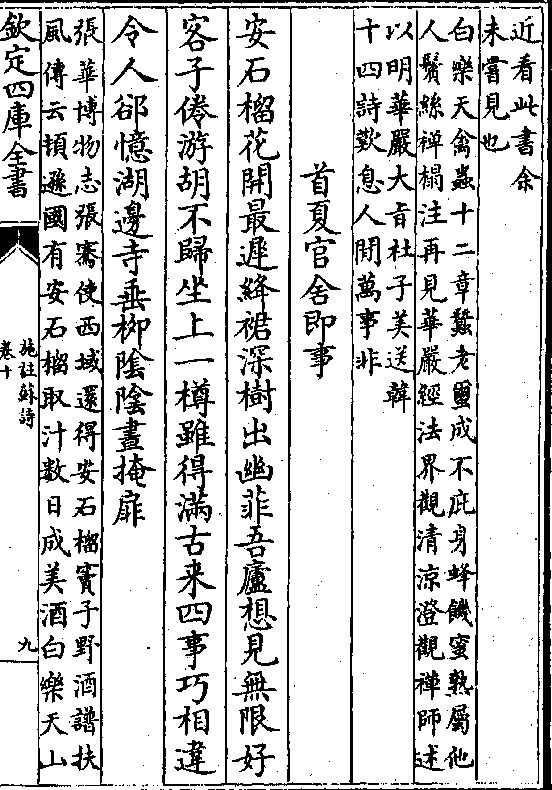 近看此書余
未嘗見也
白樂天禽蟲十二章蠶老璽成不庇身蜂饑蜜熟屬他
人鬢絲禪榻注再見華嚴經法界觀清涼澄觀禪師述
以明華嚴大㫖杜子美送韓
十四詩歎息人間萬事非
首夏官舍即事
安石榴花開最遲絳裙深樹出幽菲吾廬想見無限好
客子倦游胡不歸坐上一樽雖得滿古来四事巧相違
令人郤憶湖邊寺垂栁陰陰晝掩扉
張華博物志張騫使西域還得安石榴竇子野酒譜扶
風傳云頓遜國有安石榴取汁数日成美酒白樂天山
欽定四庫全書
施註蘇詩
卷十
九